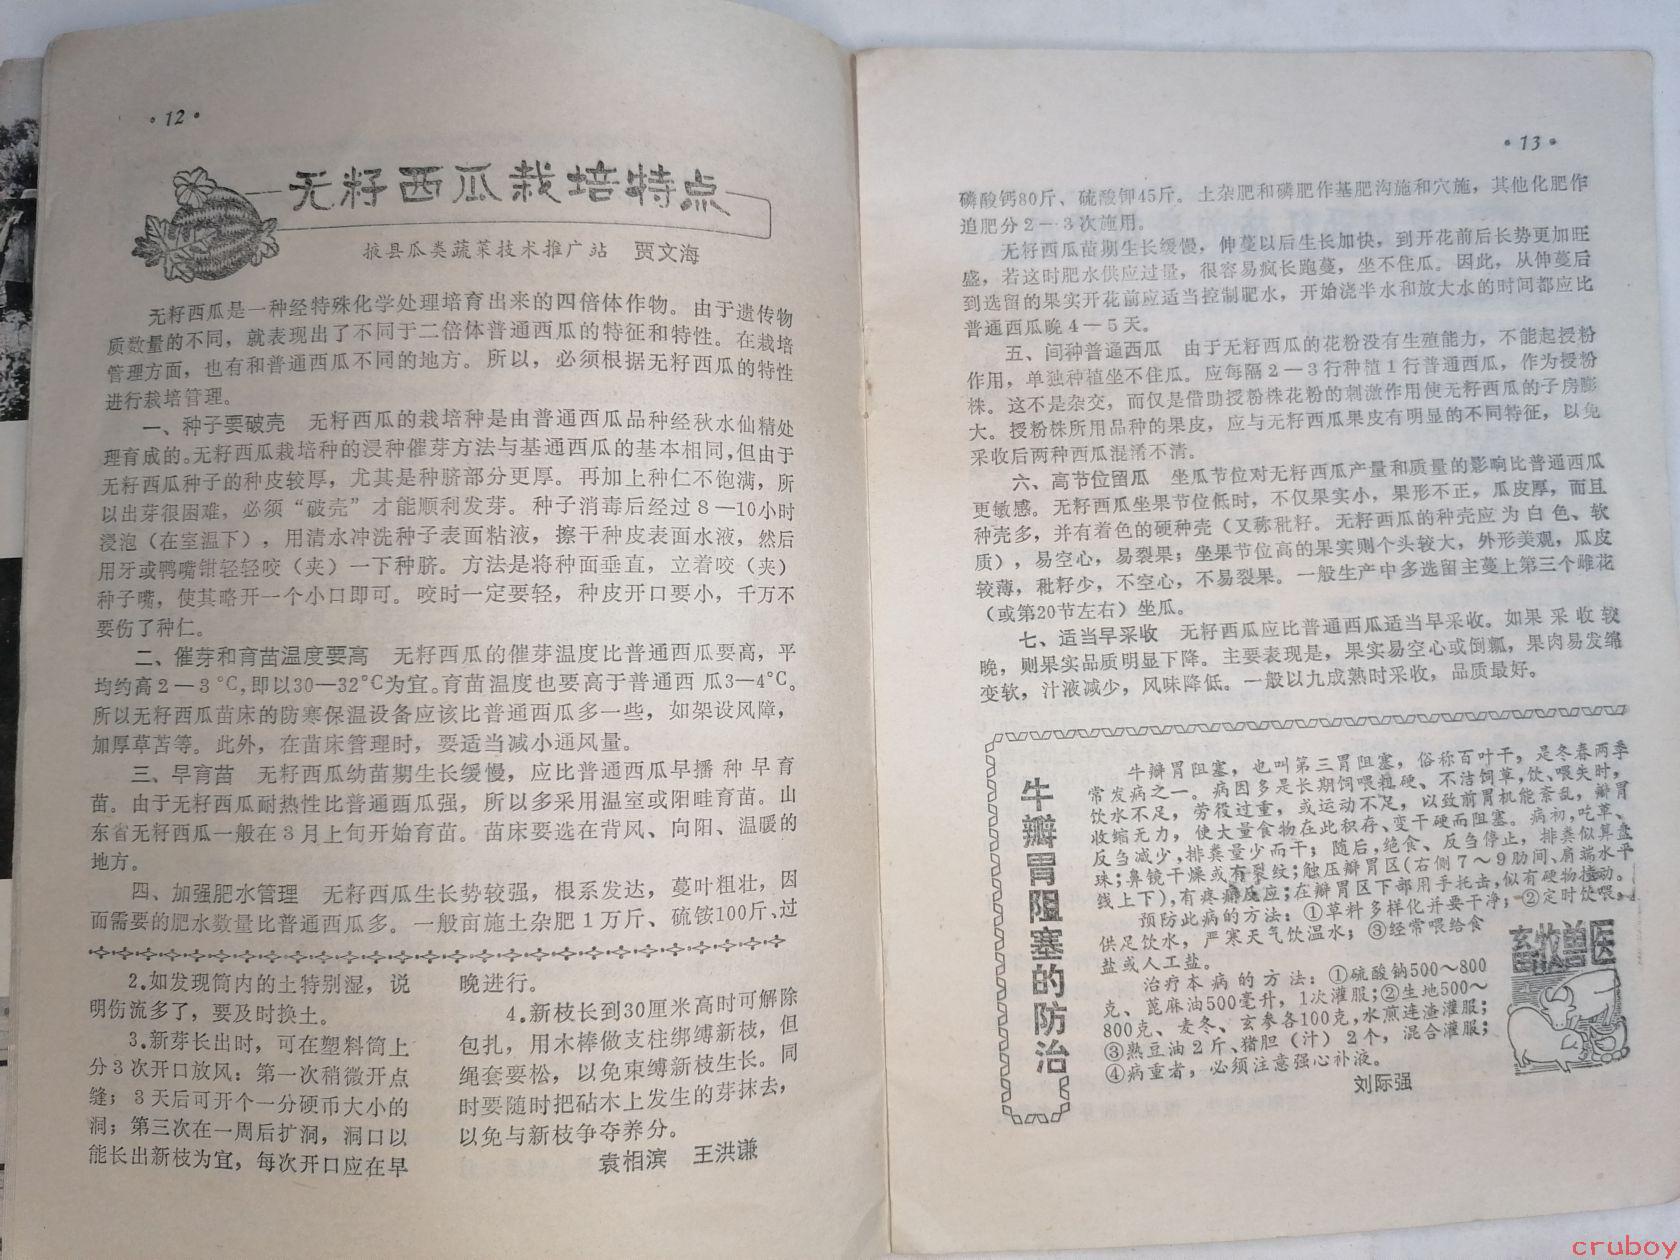 ·12·
无籽西瓜栽培特点
掖县瓜类蔬菜技术推广站 贾文海
无籽西瓜是一种经特殊化学处理培育出来的四倍体作物。由于遗传物
质数量的不同，就表现出了不同于二倍体普通西瓜的特征和特性。在栽培
管理方面，也有和普通西瓜不同的地方。所以，必须根据无籽西瓜的特性
进行栽培管理。
一、种子要破壳 无籽西瓜的栽培种是由普通西瓜品种经秋水仙精处
理育成的。无籽西瓜栽培种的浸种催芽方法与基通西瓜的基本相同，但由于
无籽西瓜种子的种皮较厚，尤其是种脐部分更厚。再加上种仁不饱满，所
以出芽很困难，必须“破壳”才能顺利发芽。种子消毒后经过8—10小时
浸泡（在室温下），用清水冲洗种子表面粘液，擦干种皮表面水液，然后
用牙或鸭嘴钳轻轻咬（夹）一下种脐。方法是将种面垂直，立着咬（夹）
种子嘴，使其略开一个小口即可。咬时一定要轻，种皮开口要小，千万不
要伤了种仁。
二、催芽和育苗温度要高 无籽西瓜的催芽温度比普通西瓜要高，平
均约高2—3℃，即以30—32℃为宜。育苗温度也要高于普通西瓜3—4℃。
所以无籽西瓜苗床的防寒保温设备应该比普通西瓜多一些，如架设风障，
加厚草苫等。此外，在苗床管理时，要适当减小通风量。
三、早育苗 无籽西瓜幼苗期生长缓慢，应比普通西瓜早播种早育
苗。由于无籽西瓜耐热性比普通西瓜强，所以多采用温室或阳畦育苗。山
东省无籽西瓜一般在3月上旬开始育苗。苗床要选在背风、向阳、温暖的
地方。
四、加强肥水管理 无籽西瓜生长势较强，根系发达，蔓叶粗壮，因
而需要的肥水数量比普通西瓜多。一般亩施土杂肥1万斤、硫铵100斤、过
2.如发现筒内的土特别湿，说
明伤流多了，要及时换土。
3.新芽长出时，可在塑料筒上
分3次开口放风：第一次稍微开点
缝；3天后可开个一分硬币大小的
洞；第三次在一周后扩洞，洞口以
能长出新枝为宜，每次开口应在早
晚进行。
4.新枝长到30厘米高时可解除
包扎，用木棒做支柱绑缚新枝，但
绳套要松，以免束缚新枝生长。同
时要随时把砧木上发生的芽抹去，
以免与新枝争夺养分。
袁相滨 王洪谦
·13·
磷酸钙80斤、硫酸钾45斤。土杂肥和磷肥作基肥沟施和穴施，其他化肥作
追肥分2—3次施用。
无籽西瓜苗期生长缓慢，伸蔓以后生长加快，到开花前后长势更加旺
盛，若这时肥水供应过量，很容易疯长跑蔓，坐不住瓜。因此，从伸蔓后
到选留的果实开花前应适当控制肥水，开始浇半水和放大水的时间都应比
普通西瓜晚4—5天。
五、间种普通西瓜 由于无籽西瓜的花粉没有生殖能力，不能起授粉
作用，单独种植坐不住瓜。应每隔2—3行种植1行普通西瓜，作为授粉
株。这不是杂交，而仅是借助授粉株花粉的刺激作用使无籽西瓜的子房膨
大。授粉株所用品种的果皮，应与无籽西瓜果皮有明显的不同特征，以免
采收后两种西瓜混淆不清。
六、高节位留瓜 坐瓜节位对无籽西瓜产量和质量的影响比普通西瓜
更敏感。无籽西瓜坐果节位低时，不仅果实小，果形不正，瓜皮厚，而且
种壳多，并有着色的硬种壳（又称秕籽．无籽西瓜的种壳应为白色、软
质），易空心，易裂果；坐果节位高的果实则个头较大，外形美观，瓜皮
较薄，秕籽少，不空心，不易裂果。一般生产中多选留主蔓上第三个雌花
（或第20节左右）坐瓜。
七、适当早采收 无籽西瓜应比普通西瓜适当早采收。如果采收较
晚，则果实品质明显下降。主要表现是，果实易空心或倒瓤，果肉易发绵
变软，汁液减少，风味降低。一般以九成熟时采收，品质最好。
牛瓣胃阻塞的防治
牛瓣胃阻塞，也叫第三胃阻塞，俗称百叶干，是冬春两季
常发病之一。病因多是长期饲喂粗硬、不洁饲草，饮、喂失时，
饮水不足，劳役过重，或运动不足，以致前胃机能紊乱，瓣胃
收缩无力，使大量食物在此积存、变干硬而阻塞。病初，吃草、
反刍减少，排粪量少而干；随后，绝食、反刍停止，排粪似算盘
珠；鼻镜干燥或有裂纹；触压瓣胃区（右侧7～9肋间、肩端水平
线上下），有疼痛反应；在瓣胃区下部用手托击，似有硬物撞动。
预防此病的方法：①草料多样化并要干净；②定时饮喂，
供足饮水，严寒天气饮温水；③经常喂给食
盐或人工盐。
治疗本病的方法：①硫酸钠500～800
克、蓖麻油500毫升，1次灌服；②生地500～
800克、麦冬、玄参各100克，水煎连渣灌服；
③熟豆油2斤、猪胆（汁）2个，混合灌服；
④病重者，必须注意强心补液。
刘际强
畜牧兽医
cruboy